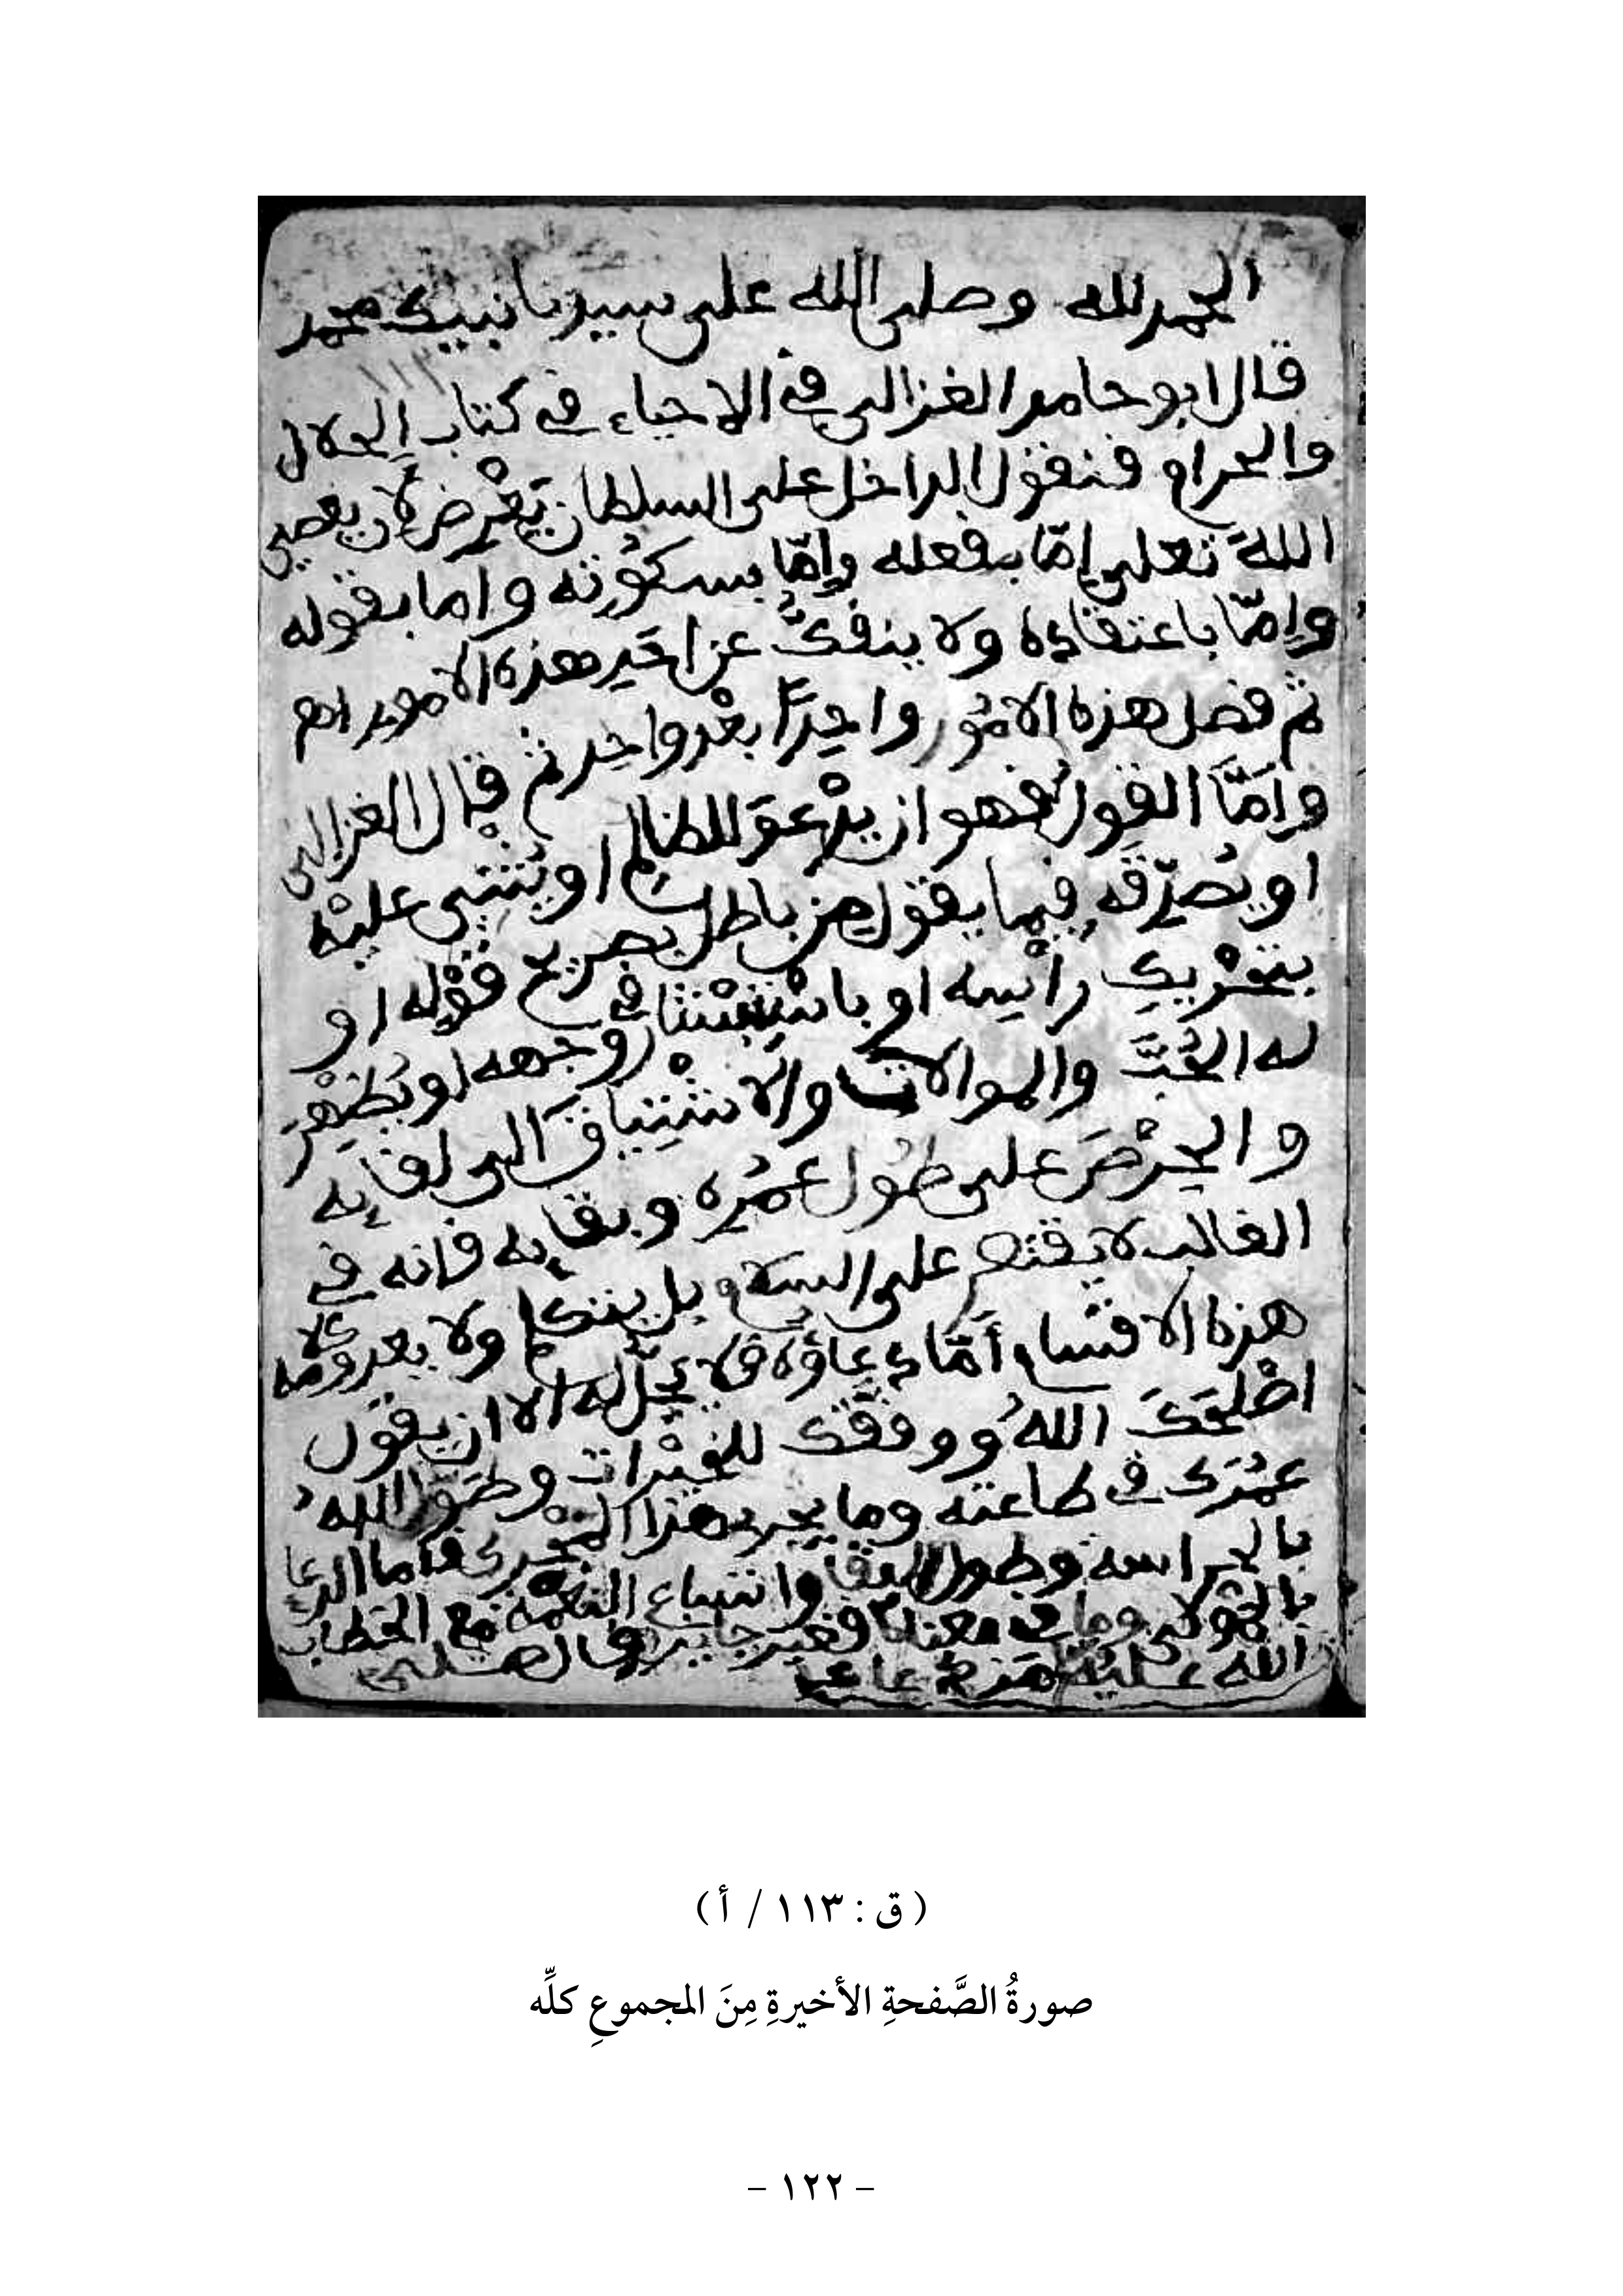 الحمد لله وصلى الله على سيدنا نبيك محمد
قال ابو حامد الغزالي في الاحياء في كتاب الحلال
والحرام فنقول الداخل على السلطان تعرض لان يعصي
الله تعلى إمّا بفعله وإمّا بسكوته واما بقوله
وإمّا باعتقاده ولا ينفكّ عن احد هذه الامور اهـ
ثم فصل هذه الامور واحدًا بعد واحد ثم قال الغزالي
وأمّا القول فهو ان يدعو للظالم او يثني عليه
او يصدّقه فيما يقول من باطل بصريح قوله او
بتحريك رأسه او باستبشار في وجهه او يظهر
له الحبّ والموالات والاشتياق الى لقايه
والحرص على طول عمره وبقايه فانه في
الغالب لا يقتصر على السلام بل يتكلم ولا يعدو كلامه
هذه الاقسام أمّا دعاؤه فلا يحلّ له الا ان يقول
اصلحك الله ووفقك للخيرات وطول الله
عمرك في طاعته وما يجري هذا المجرى فاما الدعا
بالحراسة وطول البقا واتساع النعمة مع الخطاب
بالمولى وما في معناه فغير جايز قال صلى
الله عليه من دعا
( ق : ١١٣ / أ )
صورةُ الصَّفحةِ الأخيرةِ مِنَ المجموعِ كلِّه
- ١٢٢ -